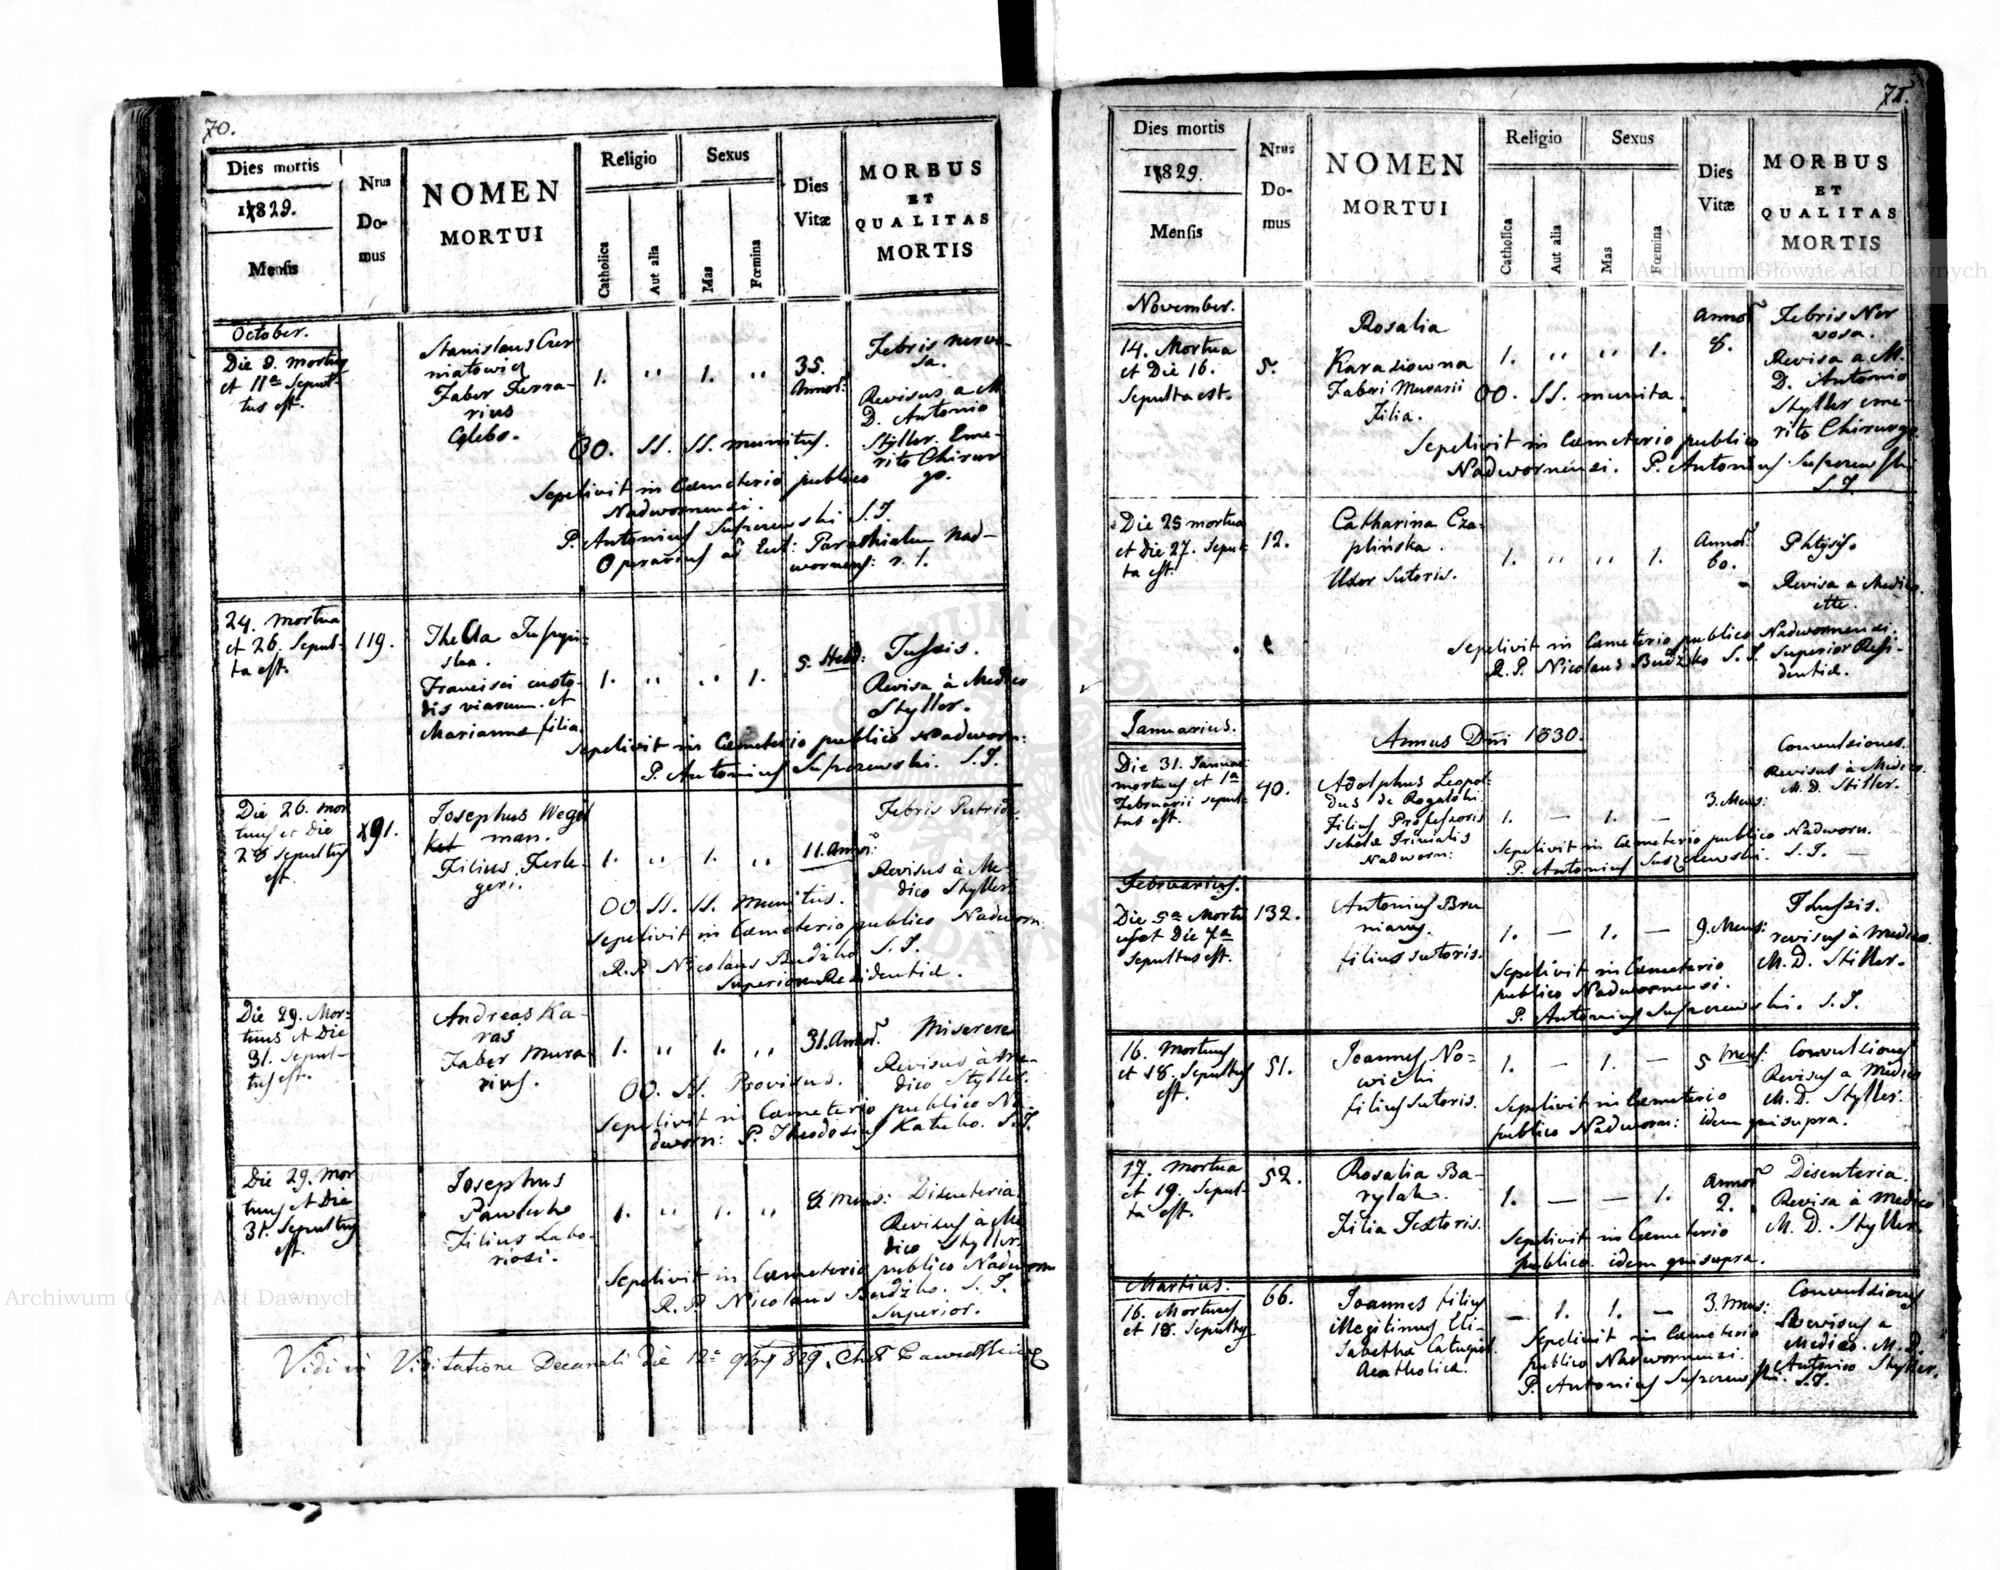 70.
Dies mortis
1829.
Mensis
Nrus
Do-
mus
NOMEN
MORTUI
Religio
Catholica
Aut alia
Sexus
Mas
Fœmina
Dies
Vitæ
MORBUS
ET
QUALITAS
MORTIS
October.
Die 8. mortuus
et 11a Sepul-
tus est.
Stanislaus Czer
niatowicz
Faber Ferra-
rius
Cœlebs.
1. " 1. "
35.
Annor:
Febris nervo-
sa.
Revisus a M.
D. Antonio
Styller. Eme-
rito Chirur
go.
OO. SS. SS. munitus.
Sepelivit in Cœmeterio publico
Nadwornensi.
P. Antonius Suszczewski S.J.
Operarius ad Eccl: Parochialem Nad-
wornens: r. l.
24. mortua
et 26. Sepul-
ta est.
119.
Thecla
Francisci custo-
dis viarum et
Marianna filia.
1. " " 1.
5. Hebd:
Tussis.
Revisa à Medico
Styller.
Sepelivit in Cœmeterio publico Nadworn:
P. Antonius Suszczewski. S.J.
Die 26. mor
tuus et die
28 Sepultus
est.
91.
Josephus Weg
man.
Filius Ferle-
geri.
1. " 1. "
11. Annor:
Febris Putrida.
Revisus à Me-
dico Styller.
OO. SS. SS. munitus.
Sepelivit in Cœmeterio publico Nadworn:
R.P. Nicolaus Budzko S.J.
Superior Residentiæ.
Die 29. Mor-
tuus et Die
31. Sepul-
tus est.
Andreas Ka-
raś
Faber Mura-
rius.
1. " 1. "
31. Annor:
Miserere
Revisus à Me-
dico Styller.
OO. SS. Provisus.
Sepelivit in Cœmeterio publico Na-
dworn: P. Theodosius Katubo. S.J.
Die 29. Mor
tuus et Die
31. Sepultus
est.
Josephus
Pawlecko
Filius Labo-
riosi.
1. " 1. "
8 Mens:
Disenteria.
Revisus à Me
dico Styller.
Sepelivit in Cœmeterio publico Nadworn
R.P. Nicolaus Budzko. S.J.
Superior.
Vidi in Visitatione Decanali die 12a 9bris 829.
71.
Dies mortis
1829.
Mensis
Nrus
Do-
mus
NOMEN
MORTUI
Religio
Catholica
Aut alia
Sexus
Mas
Fœmina
Dies
Vitæ
MORBUS
ET
QUALITAS
MORTIS
November.
14. Mortua
et Die 16.
Sepulta est.
5.
Rosalia
Karasiowna
Fabri Murarii
Filia.
1. " " 1.
Annor
8.
Febris Ner
vosa.
Revisa a M.
D. Antonio
Styller eme-
rito Chirurgo
OO. SS. munita.
Sepelivit in Cœmeterio publico
Nadwornensi. P. Antonius Suszczewski
S.J.
Die 25 mortua
et die 27. Sepul-
ta est.
12.
Catharina Cza-
plińska.
Uxor Sutoris.
1. " " 1.
Annor:
60.
Phtysis.
Revisa a Medico
Sepelivit in Cœmeterio publico Nadwornensi.
R.P. Nicolaus Budzko S.J. Superior Resi-
dentiæ.
Januarius.
Annus Dni 1830.
Die 31. Januar
mortuus et 1a
Februarii sepul-
tus est.
40.
Adolphus Leopol-
dus de Rogalski
Filius Professoris
Scholæ Trivialis
Nadworn:
1. — 1. —
3. Mens:
Convulsiones.
Revisus à Medico
M. D. Stiller.
Sepelivit in Cœmeterio publico Nadworn.
P. Antonius Suszczewski. S.J. —
Februarius.
Die 5a Mortu
us et Die 7a
Sepultus est.
132.
Antonius Bru
niany.
filius sutoris.
1. — 1. —
9. Mens:
Thussis.
revisus à Medico
M. D. Stiller.
Sepelivit in Cœmeterio
publico Nadwornensi.
P. Antonius Suszczewski. S.J.
16. Mortuus
et 18. Sepultus
est.
51.
Joannes No-
wicki
filius Sutoris.
1. — 1. —
5 Mens:
Convulsiones
Revisus a Medico
M. D. Styller.
Sepelivit in Cœmeterio
publico Nadworn: idem qui supra.
17. Mortua
et 19. Sepul-
ta est.
52.
Rosalia Ba-
rylak.
Filia Textoris.
1. — — 1.
Annor
2.
Disenteria.
Revisa à Medico
M. D. Styller.
Sepelivit in Cœmeterio
publico idem qui supra.
Martius.
16. Mortuus
et 18. Sepultus
66.
Joannes filius
illegitimus Eli-
sabetha
Acatholica.
— 1. 1. —
3. Mens:
Convulsiones
Revisus a
Medico. M. D.
Antonio Styller.
Sepelivit in Cœmeterio
publico Nadwornensi.
P. Antonius Suszczewski. S.J.
Archiwum Główne Akt Dawnych
Archiwum Główne Akt Dawnych